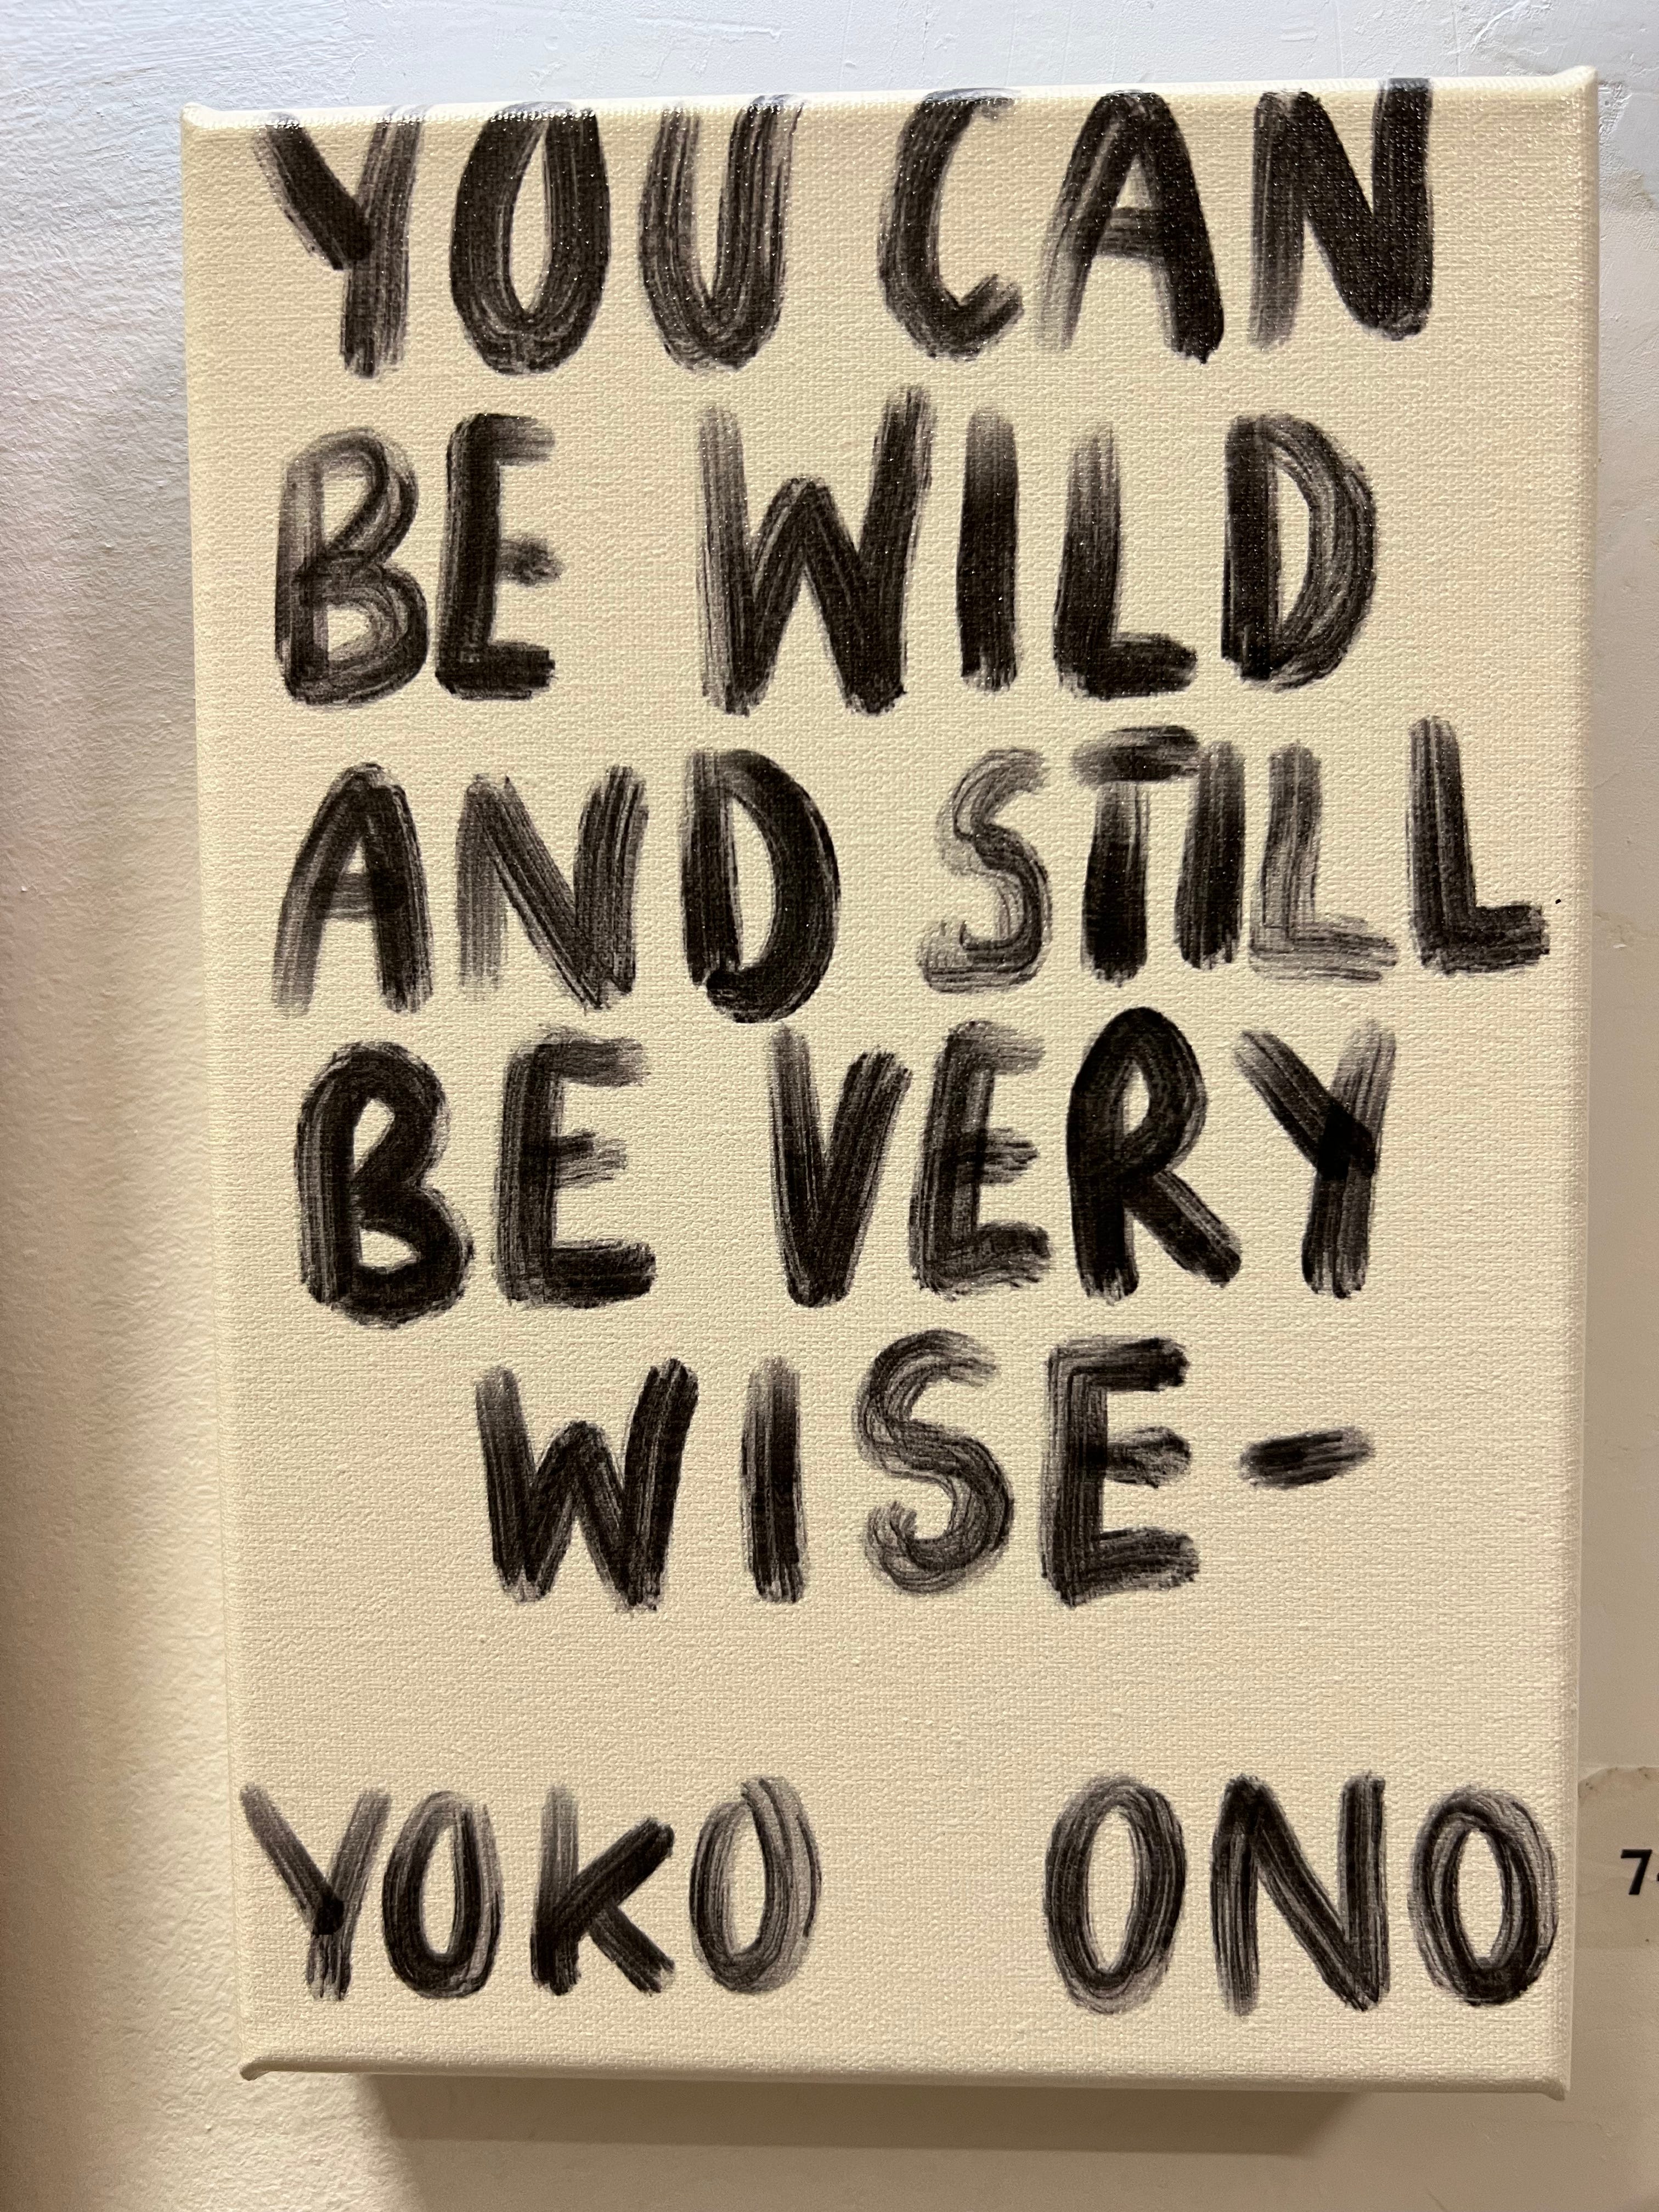 YOU CAN
BE WILD
AND STILL
BE VERY
WISE-
YOKO ONO